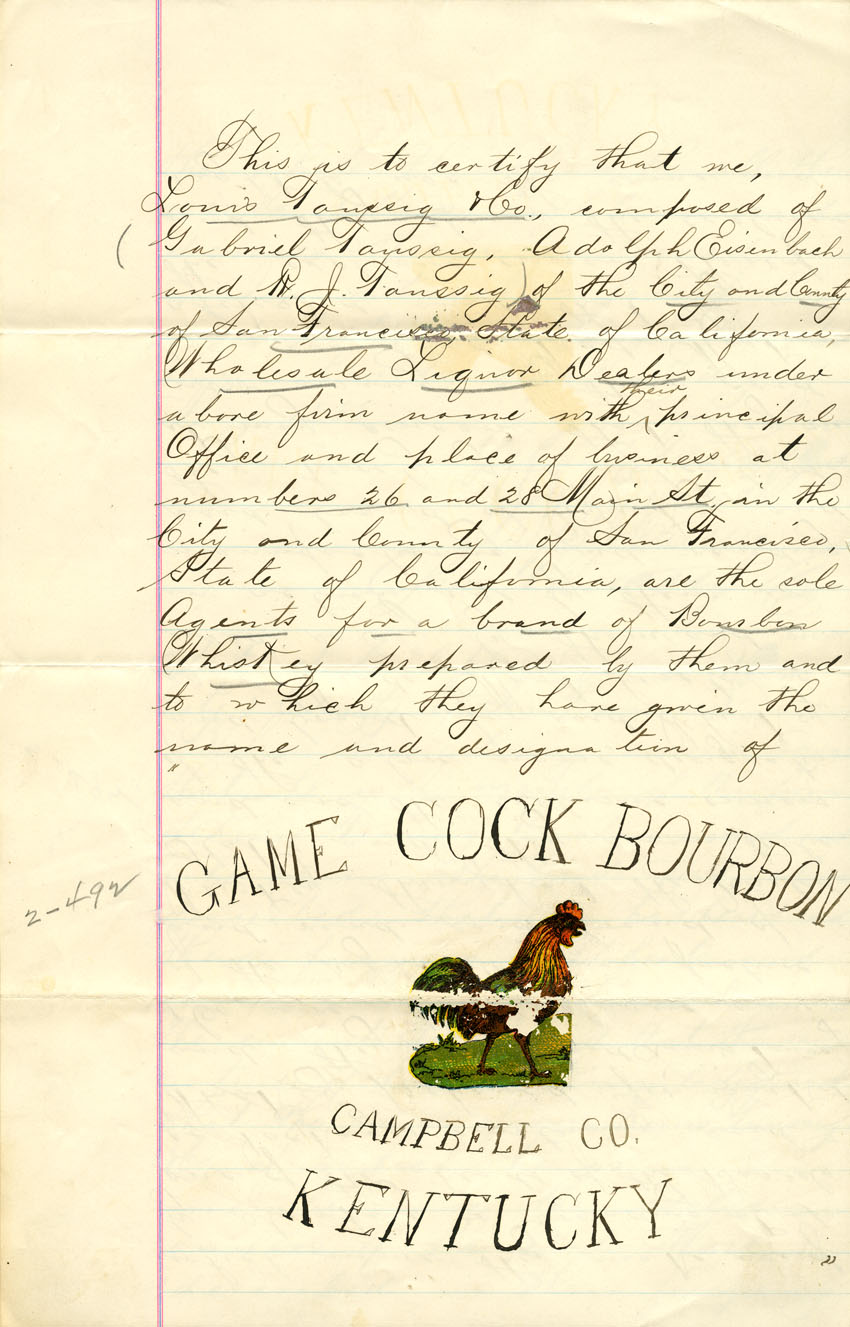 This is to certify that we,
Louis Taussig & Co., composed of
( Gabriel Taussig, Adolph Eisenbach
and R. J. Taussig) of the City and County
of San Francisco, State of California,
Wholesale Liquor Dealers under
above firm name with their principal
Office and place of business at
numbers 26 and 28 Main St, in the
City and County of San Francisco,
State of California, are the sole
Agents for a brand of Bourbon
Whiskey prepared by them and
to which they have given the
name and designation of
"
GAME COCK BOURBON
2-492
CAMPBELL CO.
KENTUCKY
"